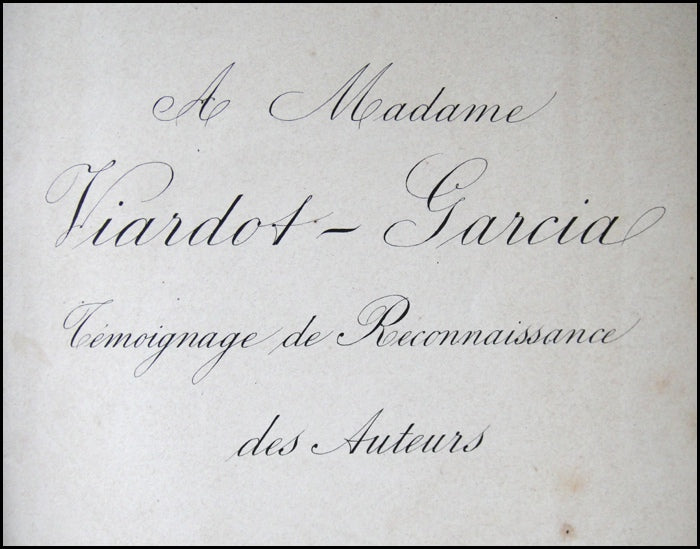 A Madame
Viardot - Garcia
Témoignage de Reconnaissance
des Auteurs